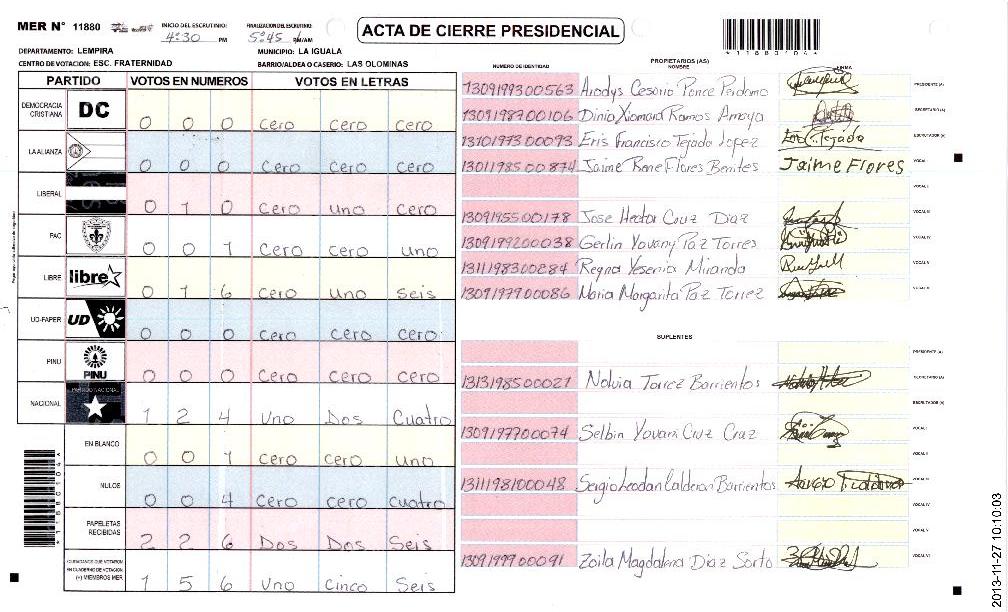 MER N° 11880
INICIO DEL ESCRUTINIO:
4:30 PM
FINALIZACION DEL ESCRUTINIO:
5:45 PM/AM
ACTA DE CIERRE PRESIDENCIAL
*1188104*
DEPARTAMENTO: LEMPIRA
MUNICIPIO: LA IGUALA
CENTRO DE VOTACION: ESC. FRATERNIDAD
BARRIO/ALDEA O CASERIO: LAS OLOMINAS
PARTIDO VOTOS EN NUMEROS VOTOS EN LETRAS
DEMOCRACIA CRISTIANA DC 0 0 0 Cero Cero Cero
LA ALIANZA 0 0 0 Cero Cero Cero
LIBERAL 0 1 0 Cero uno Cero
PAC 0 0 1 Cero Cero uno
LIBRE libre 0 1 6 Cero Uno Seis
UD-FAPER UD 0 0 0 Cero Cero Cero
PINU PINU 0 0 0 Cero Cero Cero
NACIONAL PARTIDO NACIONAL 1 2 4 Uno Dos Cuatro
EN BLANCO 0 0 1 Cero Cero uno
NULOS 0 0 4 Cero cero cuatro
PAPELETAS RECIBIDAS 2 2 6 Dos Dos Seis
CIUDADANOS QUE VOTARON
EN CUADERNO DE VOTACION
(+) MIEMBROS MER 1 5 6 Uno Cinco Seis
*1188104*
PROPIETARIOS (AS)
NUMERO DE IDENTIDAD NOMBRE FIRMA
1309199300563 Arodys Cesario Ponce Perdomo PRESIDENTE (A)
1309198700106 Dinia Xiomara Ramos Amaya SECRETARIO (A)
1310197300093 Eris Francisco Tejada Lopez ESCRUTADOR (A)
1301198500874 Jaime Rene Flores Benites Jaime Flores VOCAL I
VOCAL II
1309195500178 Jose Hector Cruz Diaz VOCAL III
1309199200038 Gerlin Yovany Paz Torres VOCAL IV
1311198300284 Regna Yesenia Miranda VOCAL V
1309197900086 Maria Margarita Paz Torrez
SUPLENTES
PRESIDENTE (A)
1313198500021 Nolvia Torrez Barrientos SECRETARIO (A)
ESCRUTADOR (A)
1309197700074 Selbin Yovani Cruz Cruz VOCAL I
VOCAL II
1311198100048 Sergio Leodan Calderon Barrientos VOCAL III
VOCAL IV
VOCAL V
1309199900091 Zoila Magdalena Diaz Sorto VOCAL VI
2013-11-27 10:10:03